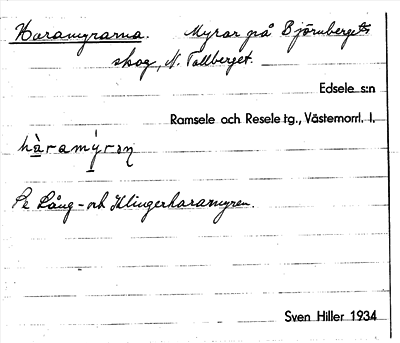 Haramyrarna. Myrar på Björnbergets
skog, N. Tallberget.
Edsele s:n
Ramsele och Resele tg., Västernorrl. l.
hàramýrɐn
Se Lång- och Klingerharamyren.
Sven Hiller 1934